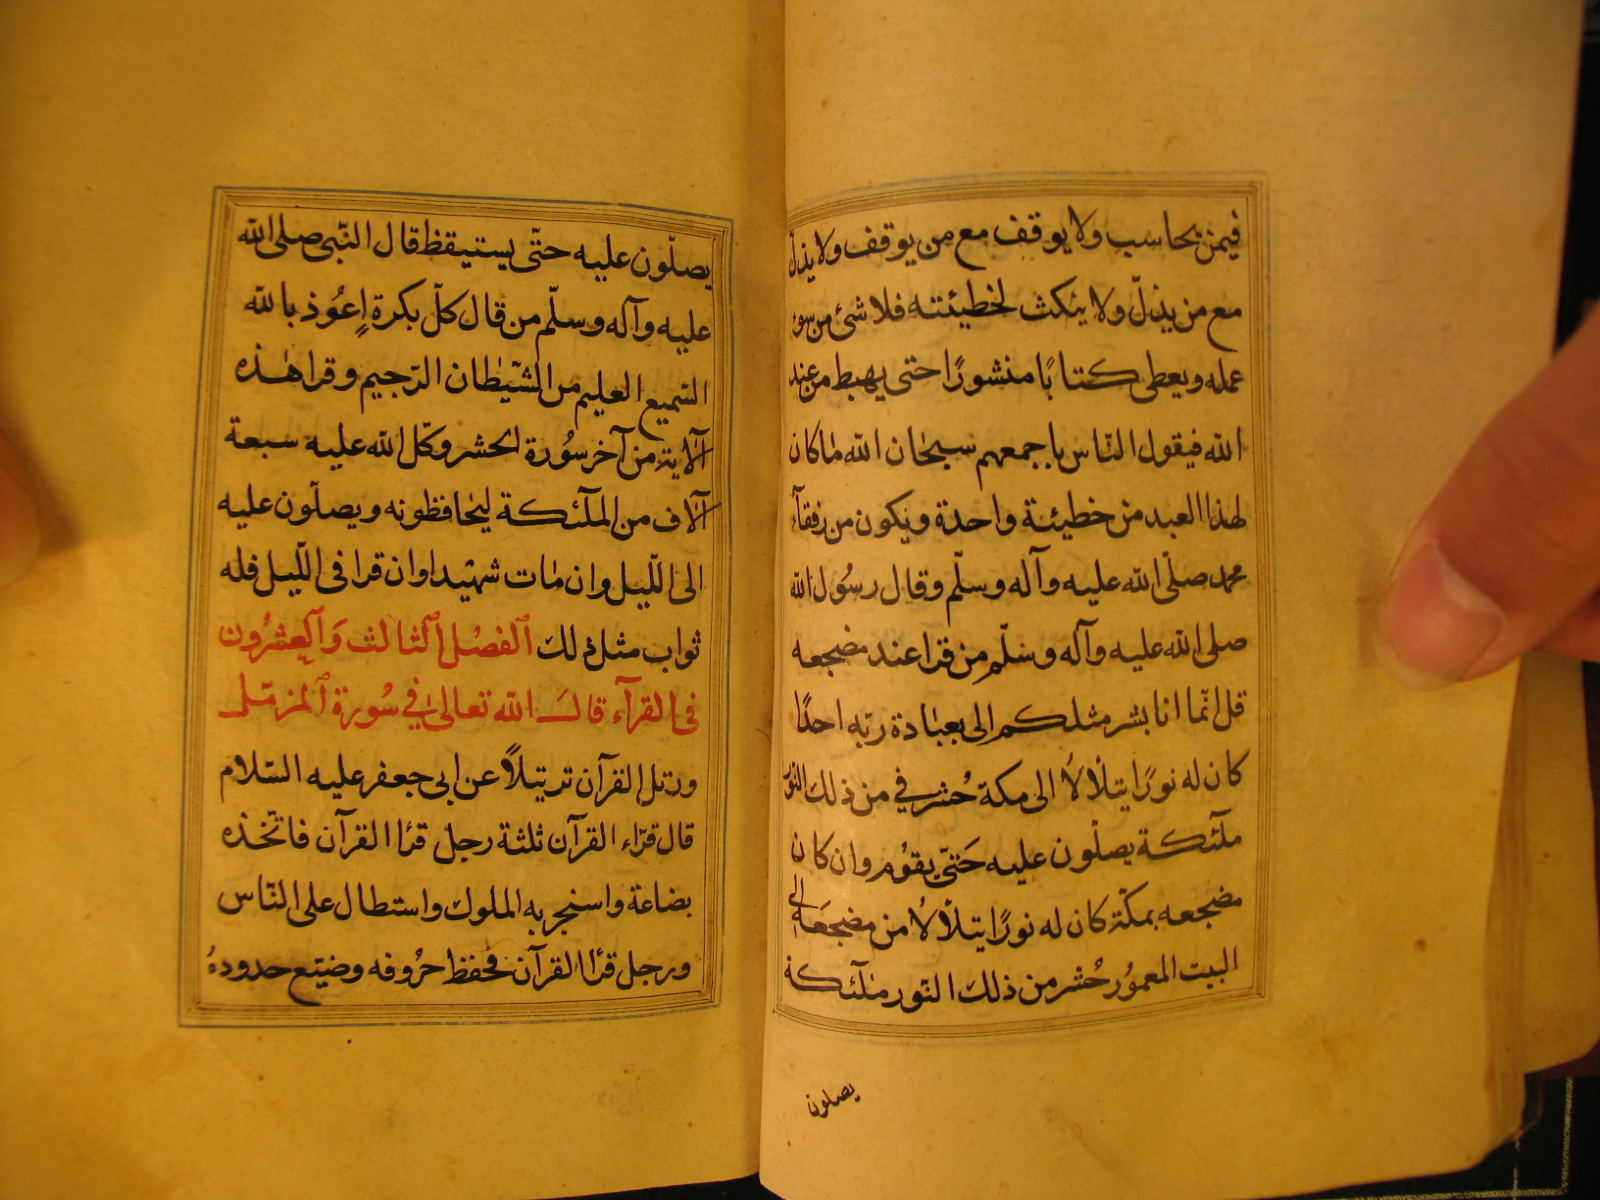 فيمن يحاسب ولا يوقف مع من يوقف ولا يذلّ
مع من يذلّ ولا ينكث لخطيئته فلا شئ من سوء
عمله ويعطى كتابًا منشورًا حتى يهبط من عند
الله فيقول الناس باجمعهم سبحان الله ماكان
لهذا العبد من خطيئة واحدة ويكون من رفقآء
محمد صلّى الله عليه وآله وسلّم وقال رسُول الله
صلى الله عليه وآله وسلّم من قرا عند مضجعه
قل انّما انا بشر مثلكم الى بعبادة ربّه احدًا
كان له نورًا يتلألأ الى مكة حُشر في من ذلك النّور
ملٓئكة يصلّون عليه حَتىّ يقوُم وان كان
مضجعه بمكّة كان له نورًا يتلألأ من مضجَعه الى
البيت المعموُر حُشر من ذلك النّور ملٓئكة
يصلون
يصلّون عليه حتّى يستيقظ قال النّبى صلى الله
عليه وآله وسلّم من قال كلّ بكرة اعُوذ بالله
السّميع العليم من الشّيطان الرّجيم وقرا هذه
الآية من آخر سُورة الحشر وكّل الله عليه سبعة
آلاف من الملٓئكة ليحافظونه ويصلّون عليه
الى اللّيل وان مات شهيدا وان قرا فى اللّيل فله
ثواب مثل ذلك الفصُل الثالث وَالعشرُون
فى القرآء قالَ الله تعالى في سُورة المزمّل
ورتل القرآن ترتيلاً عن ابى جعفر عليه السّلام
قال قرّاء القرآن ثلثة رجل قرأ القرآن فاتّخذه
بضاعة واستجر به الملوك واستطال على النّاس
ورجل قرأ القرآن فحفظ حرُوفه وضيّع حدودهُ